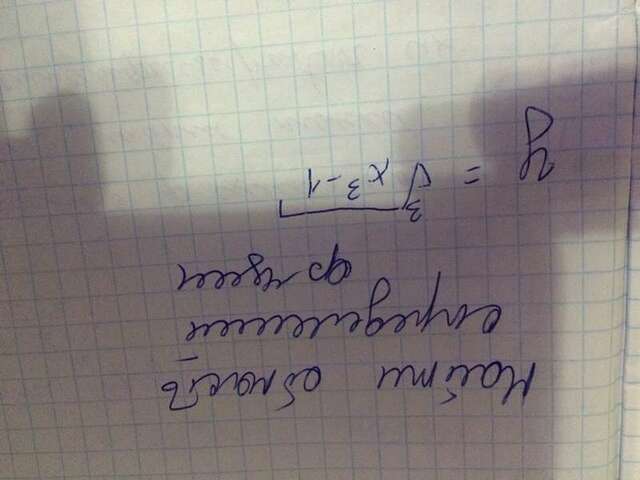 Найти область
определения
функции
y = ∛(x³-1)